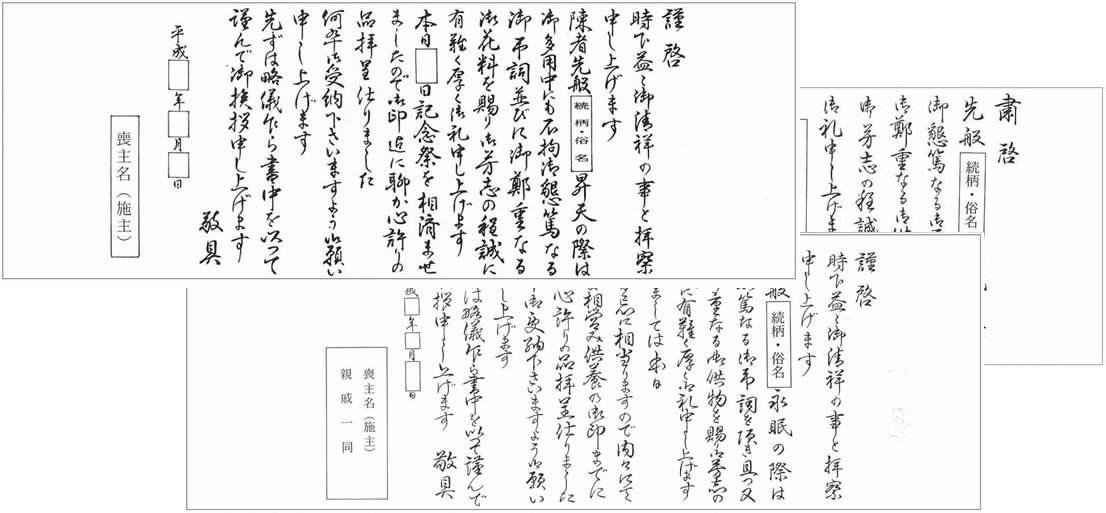 謹啓
時下益々御清祥の事と拝察
申し上げます
陳者先般 続柄・俗名 昇天の際は
御多用中にも不拘御懇篤なる
御弔詞並びに御鄭重なる
御花料を賜り御芳志の程誠に
有難く厚く御礼申し上げます
本日□日記念祭を相済ませ
ましたので御印迄に聊か心許りの
品拝呈仕りました
何卒御受納下さいますよう御願い
申し上げます
先ずは略儀乍ら書中を以って
謹んで御挨拶申し上げます
敬具
平成□年□月□日
喪主名(施主)
粛啓
先般 続柄・俗名
御懇篤なる御
御鄭重なる御
御芳志の程誠
御礼申し上げま
謹啓
時下益々御清祥の事と拝察
申し上げます
般 続柄・俗名 永眠の際は
篤なる御弔詞を頂き且つ又
重なる御供物を賜り御芳志の
に有難く厚く御礼申し上げます
ましては本日
忌に相当りますので内々にて
相営み供養の御印までに
心許りの品拝呈仕りました
御受納下さいますよう御願い
し上げます
は略儀乍ら書中を以て謹んで
拶申し上げます 敬具
成□年□月□日
喪主名(施主)
親戚一同